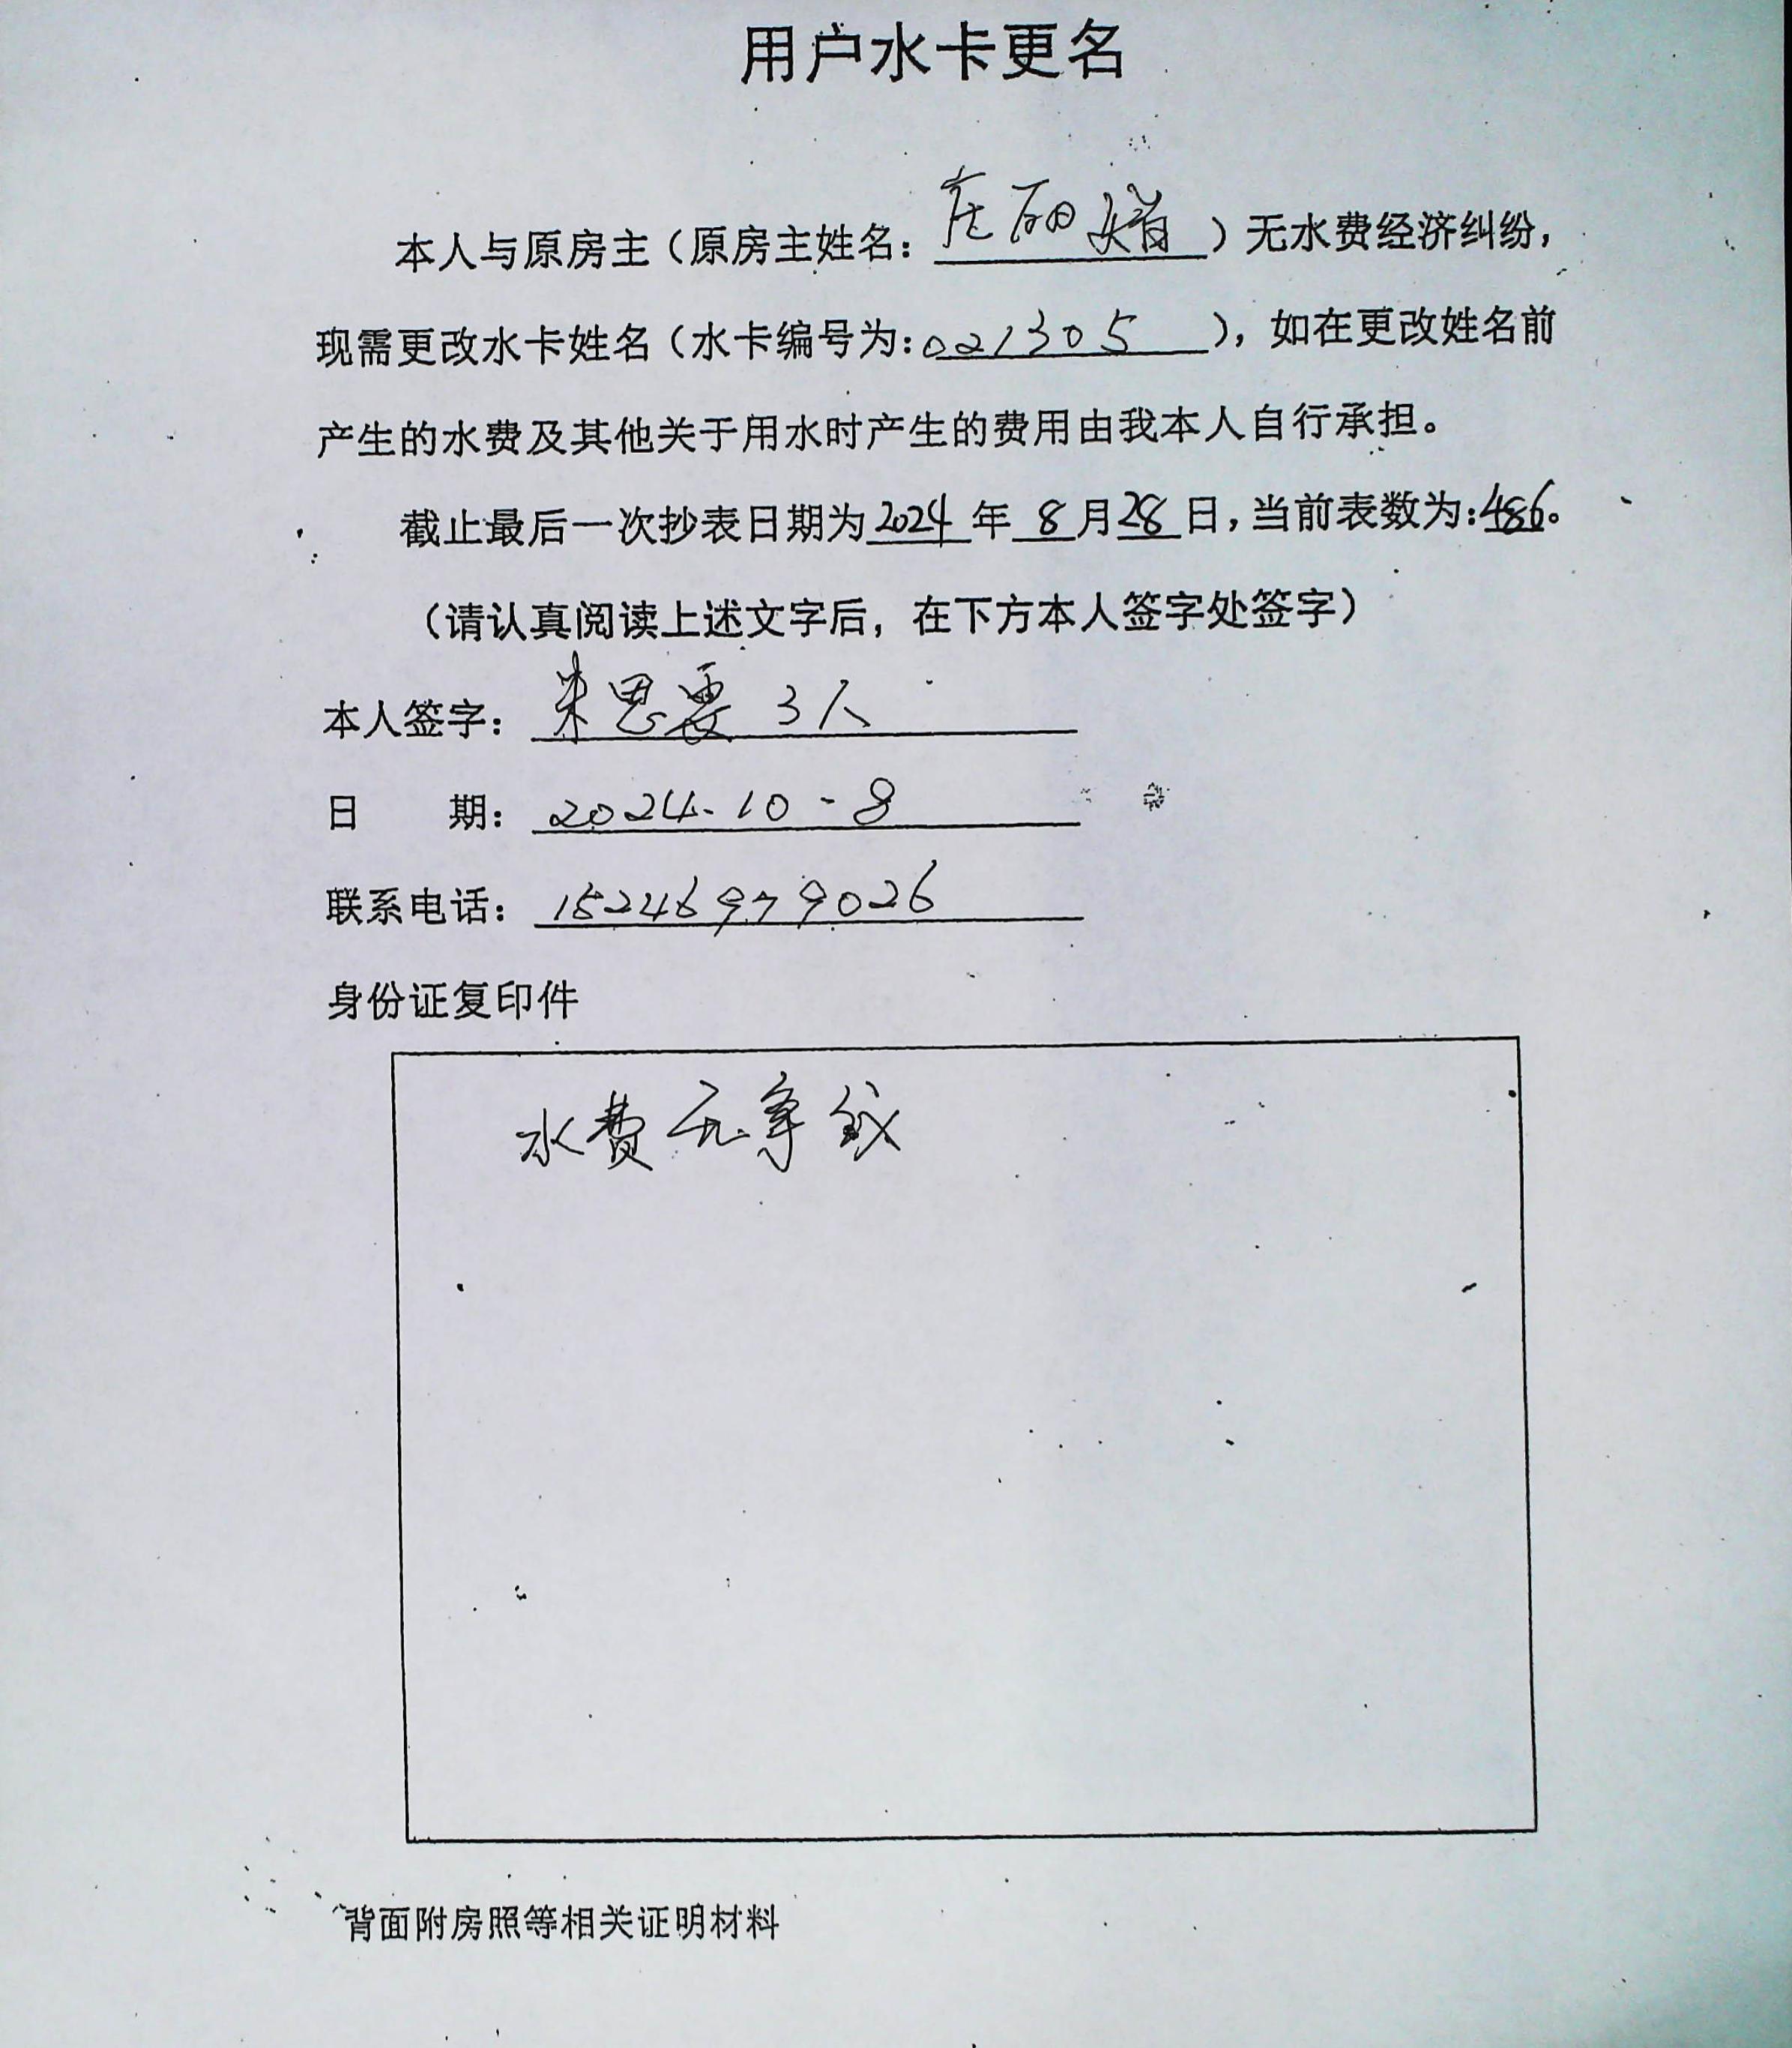 用户水卡更名
本人与原房主（原房主姓名：庄丽娟）无水费经济纠纷，
现需更改水卡姓名（水卡编号为：021305），如在更改姓名前
产生的水费及其他关于用水时产生的费用由我本人自行承担。
截止最后一次抄表日期为2024年8月28日，当前表数为：486。
（请认真阅读上述文字后，在下方本人签字处签字）
本人签字：朱思 3人
日 期：2024.10-8
联系电话：15246979026
身份证复印件
水费无争议
背面附房照等相关证明材料